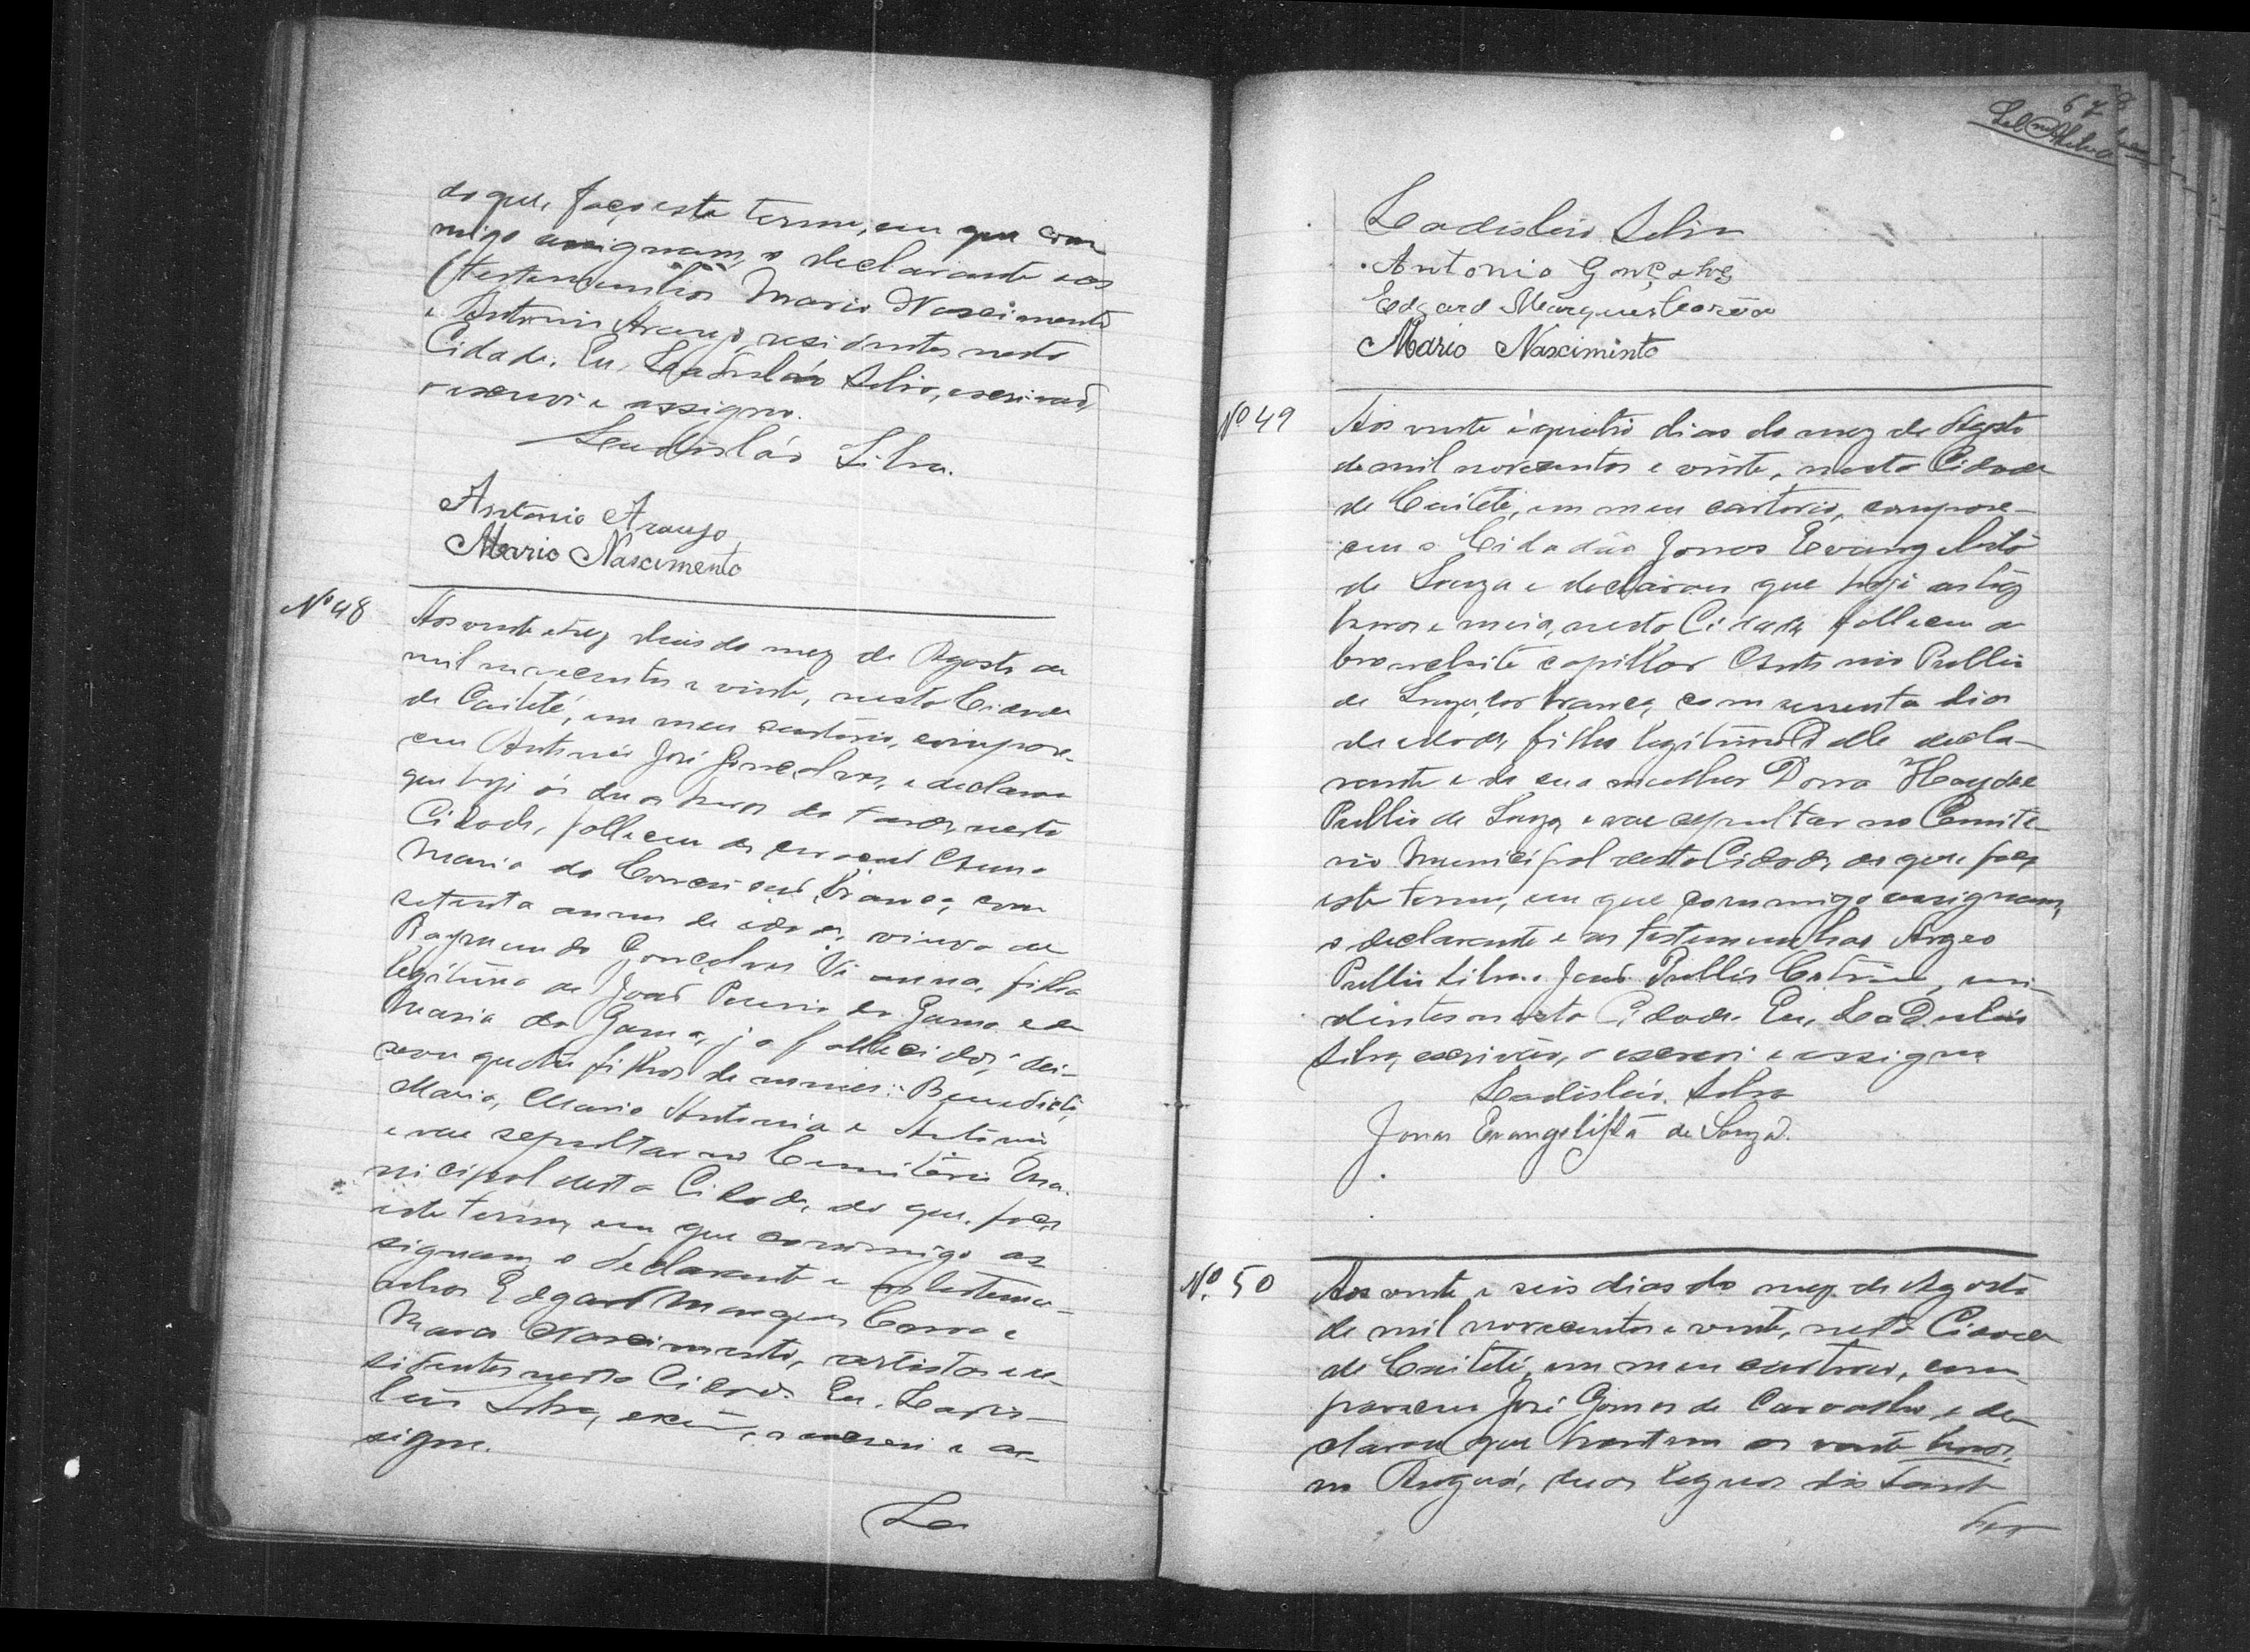 do que, faço este termo, em que com
migo assignam, o declarante e as
testemunhas Mario Nascimento
e Antonio Araujo, residentes nesta
Cidade. Eu, Ladisláo Silva, escrivão,
o escrevi e assigno.
Ladisláo Silva.
Antonio Araujo
Mario Nascimento
Nº 48
Aos vinte e trez dias do mez de Agosto de
mil novecentos e vinte, nesta Cidade
de Caiteté, em meu cartorio, compare-
ceu Antonio José Gonçalves, e declarou
que hoje ás duas horas da tarde, nesta
Cidade, falleceu de Anna
Maria da Conceição, branca, com
setenta annos de edade, viuva de
Raymundo Gonçalves Vianna, filha
legitima de João Pereira da Gama e de
Maria da Gama, já fallecidos; dei-
xou quatro filhos de nomes: Benedicta,
Maria, Maria Antonia e Antonio
e vae sepultar no Cemiterio Mu-
nicipal desta Cidade, do que, faço
este termo, em que commigo as-
signam, o declarante e as testemu-
nhas Edgard Marques Correa e
Mario Nascimento, artistas e re-
sidentes nesta Cidade. Eu, Ladis-
láo Silva, escrivão, o escrevi e as-
signo.
La
67
Ladisláo Silva
Antonio Gonçalves
Edgard Marques Corrêa
Mario Nascimento
Nº 49
Aos vinte e quatro dias do mez de Agosto
de mil novecentos e vinte, nesta Cidade
de Caiteté, em meu cartorio, compare-
ceu o Cidadão Jonas Evangelista
de Souza e declarou que hoje as trez
horas e meia, nesta Cidade falleceu de
bronchite capillar Antonio Publio
de Souza, cor branca, com sessenta dias
de edade, filho legitimo delle decla-
rante e de sua mulher Dona Haydee
Publio de Souza e vae sepultar no Cemite-
rio Municipal desta Cidade, do que, faço
este termo, em que commigo assignam,
o declarante e as testemunhas Argeo
Publio Silva e João Publio Cotrim, resi-
dentes nesta Cidade. Eu, Ladisláo
Silva, escrivão, o escrevi e assigno
Ladisláo Silva
Jonas Evangelista de Souza.
Nº 50
Aos vinte e seis dias do mez de Agosto
de mil novecentos e vinte, nesta Cidade
de Caiteté, em meu cartorio, com-
pareceu José Gomes de Carvalho, e de-
clarou que hontem as vinte horas,
no duas leguas distante